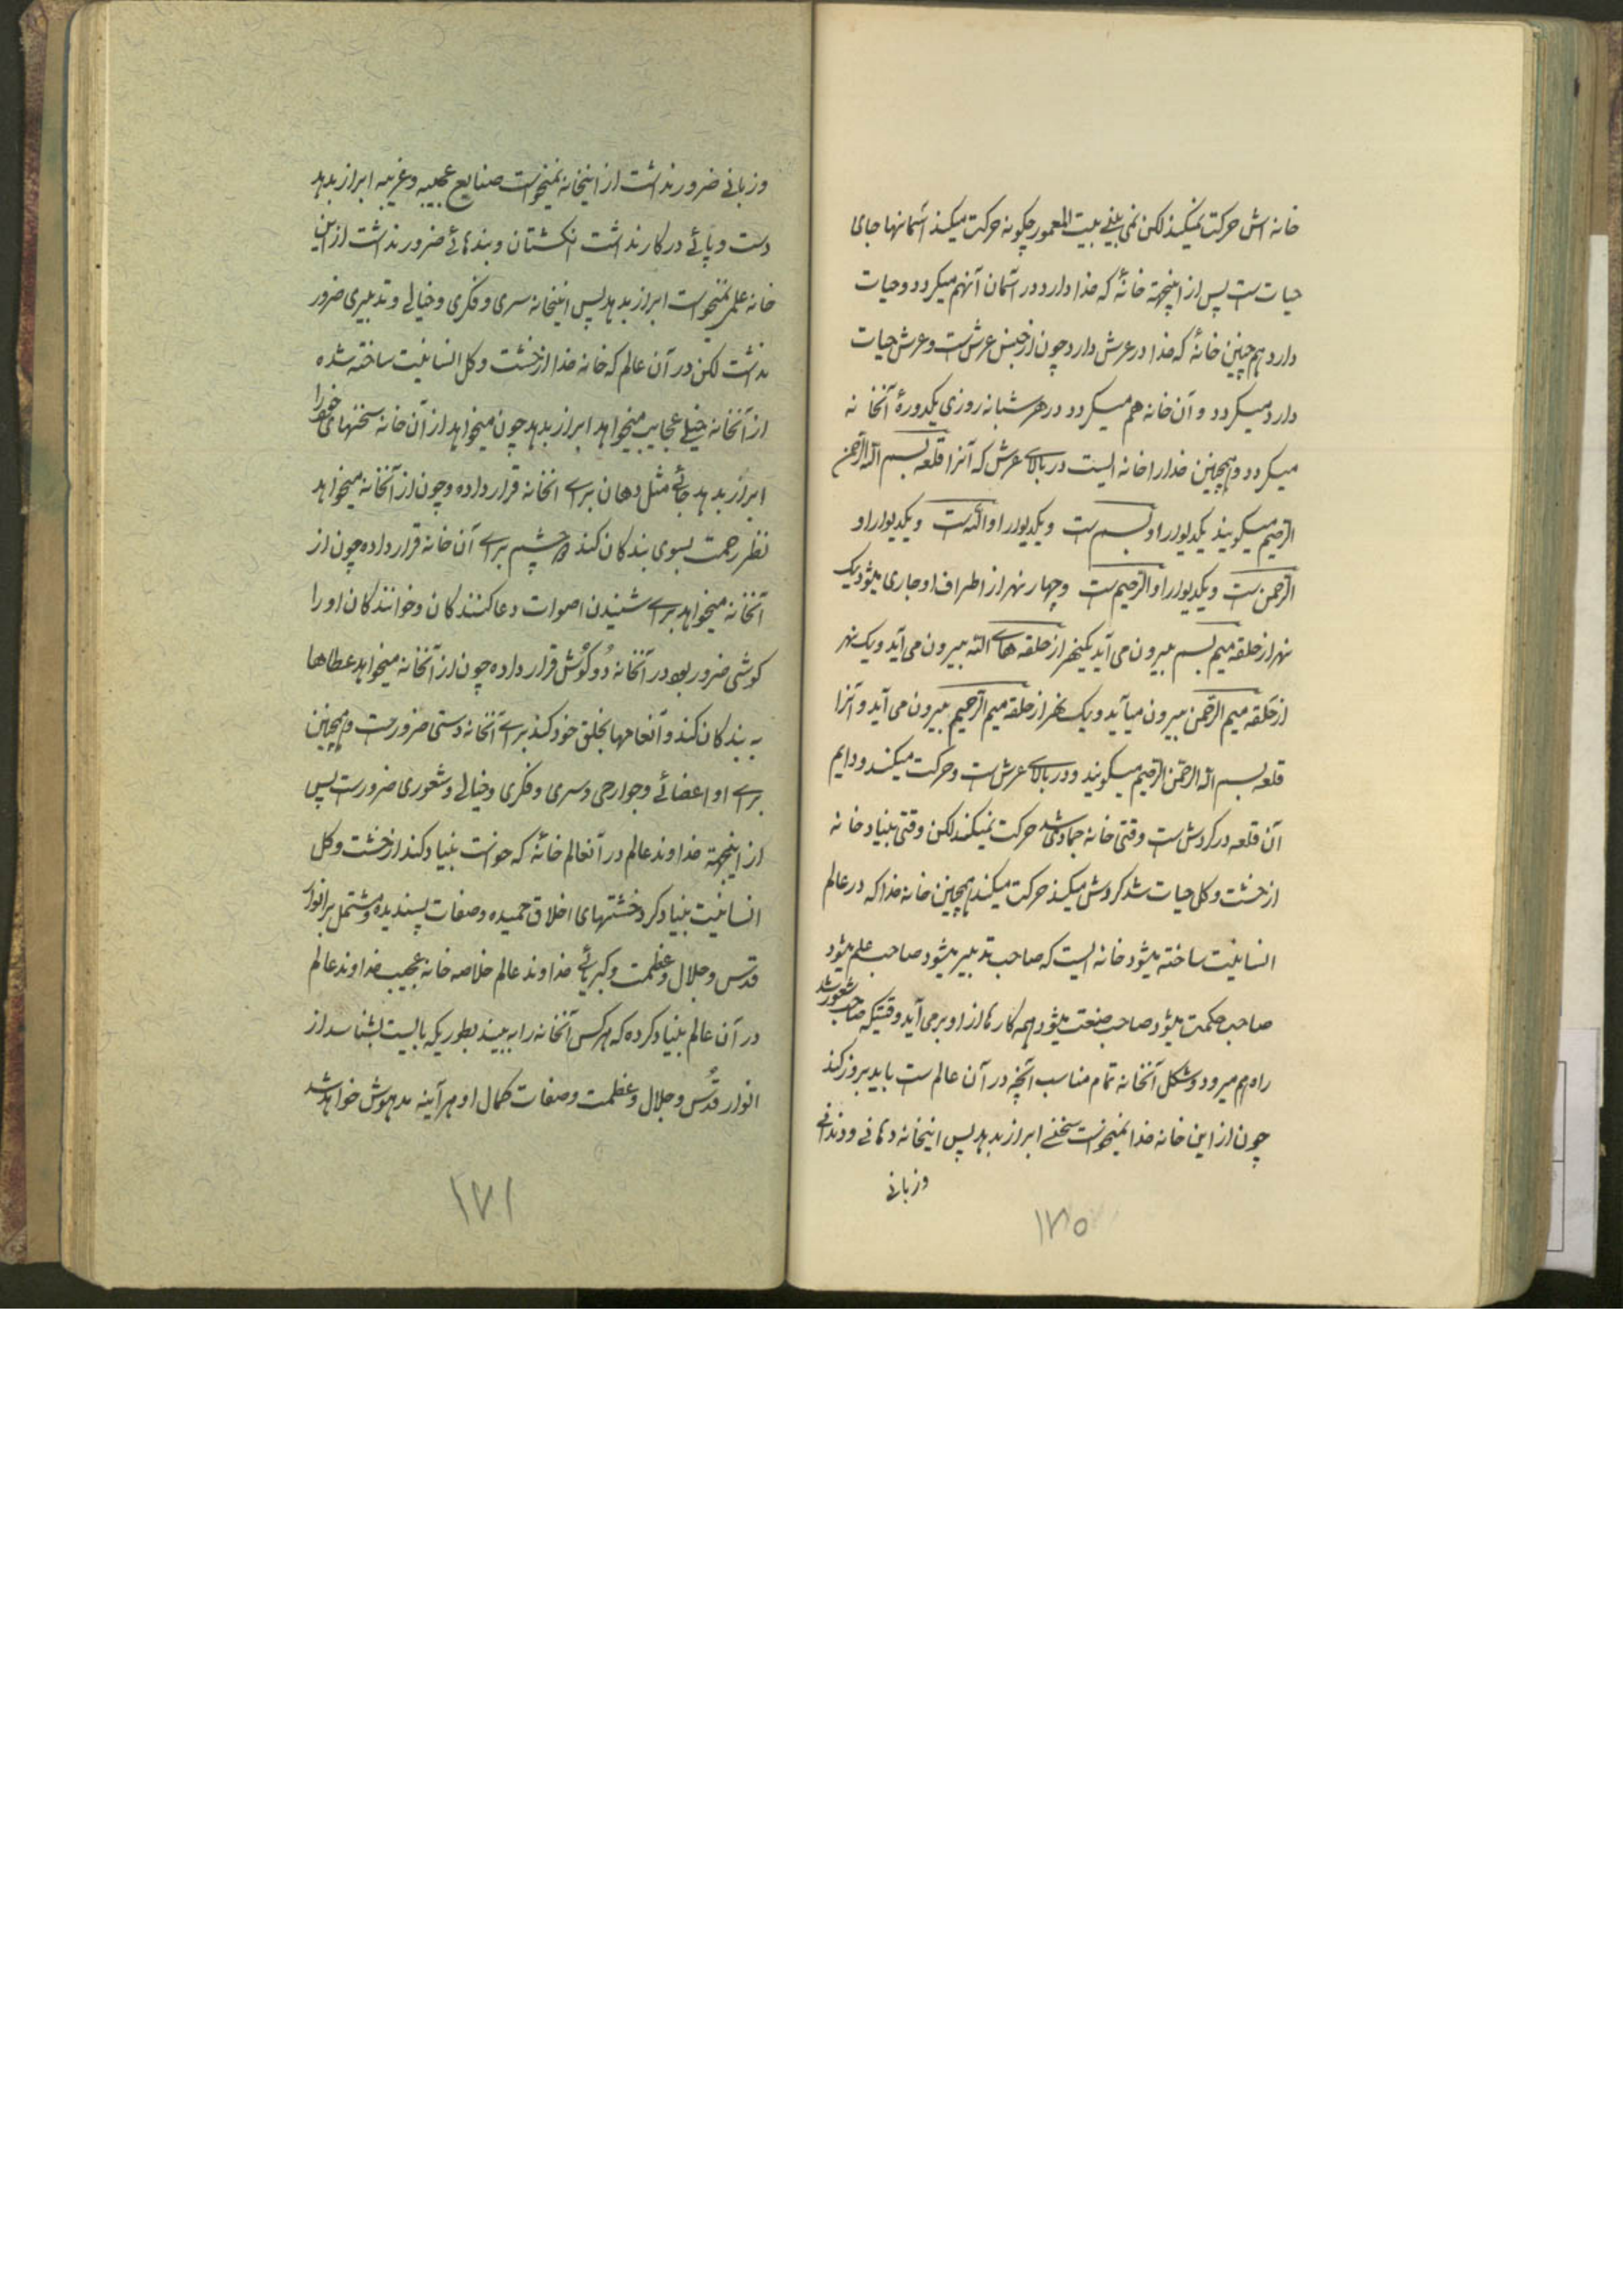 خانه اش حرکت نمیکند لکن نمی بینی بیت المعمور چگونه حرکت میکند آسمانها جای
حیات ست پس از اینجهة خانهٔ که خدا دارد در آسمان آنهم میکردد و حیات
دارد هم چنین خانهٔ که خدا در عرش دارد چون از جنس عرش ست و عرش حیات
دارد میکردد و آن خانه هم میکردد در هر شبانه روزی یکدورهٔ آنخانه
میکردد و همچنین خدا را خانه ایست در بالای عرش که آنرا قلعه بسم الله الرحمن
الرحیم میکویند یکدیوار او بسم ست و یکدیوار او الله ست و یکدیوار او
الرحمن ست و یکدیوار او الرحیم ست و چهار نهر از اطراف او جاری میشود یک
نهر از حلقه میم بسم بیرون می آید یکنهر از حلقه های الله بیرون می آید و یک نهر
از حلقه میم الرحمن بیرون میآید و یک نهر از حلقه میم الرحیم بیرون می آید و آنرا
قلعه بسم الله الرحمن الرحیم میکویند و در بالای عرش ست و حرکت میکند و دایم
آن قلعه در کردش ست وقتی خانه جمادی شد حرکت نمیکند لکن وقتی بنیاد خانه
از خشت و کل حیات شد کردش میکند حرکت میکند همچنین خانه خدا که در عالم
انسانیت ساخته میشود خانه ایست که صاحب تدبیر میشود صاحب علم میشود
صاحب حکمت میشود صاحب صنعت میشود همه کارها از او بر می آید وقتیکه صاحب شعور شد
راه هم میرود و شکل آنخانه تمام مناسب آنچه در آن عالم ست باید بروز کند
چون از این خانه خدا نمیخواست سخنی ابراز بدهد پس اینخانه دهانی و دندانی
وزبانی
۱۷۵
وزبانی ضرور نداشت از اینخانه نمیخواست صنایع عجیبه و غریبه ابراز بدهد
دست و پائی در کار نداشت انکشتان و بندهائی ضرور نداشت از این
خانه علمی نمیخواست ابراز بدهد پس اینخانه سری و فکری و خیالی و تدبیری ضرور
نداشت لکن در آن عالم که خانه خدا از خشت و کل انسانیت ساخته شده
از آنخانه خیلی عجایب میخواهد ابراز بدهد چون میخواهد از آن خانه سخنهای خود را
ابراز بدهد جائی مثل دهان برای آنخانه قرار داده و چون از آنخانه میخواهد
نظر رحمت بسوی بندکان کند چشم برای آن خانه قرار داده چون از
آنخانه میخواهد برای شنیدن اصوات دعا کنندکان و خوانندکان او را
کوشی ضرور بود در آنخانه دو کوش قرار داده چون از آنخانه میخواهد عطاها
به بندکان کند و انعامها بخلق خود کند برای آنخانه دستی ضرور ست و همچنین
برای او اعضائی و جوارحی و سری و فکری و خیالی و شعوری ضرور ست پس
از اینجهة خداوند عالم در آنعالم خانهٔ که خواست بنیاد کند از خشت و کل
انسانیت بنیاد کرد خشتهای اخلاق حمیده و صفات پسندیده و مشتمل بر انوار
قدس و جلال و عظمت و کبریائی خداوند عالم خلاصه خانه عجیب خداوند عالم
در آن عالم بنیاد کرده که هر کس آنخانه را به بیند بطوریکه بایست بشناسد از
انوار قدس و جلال و عظمت و صفات کمال او هر آینه مدهوش خواهد شد
۱۷۶